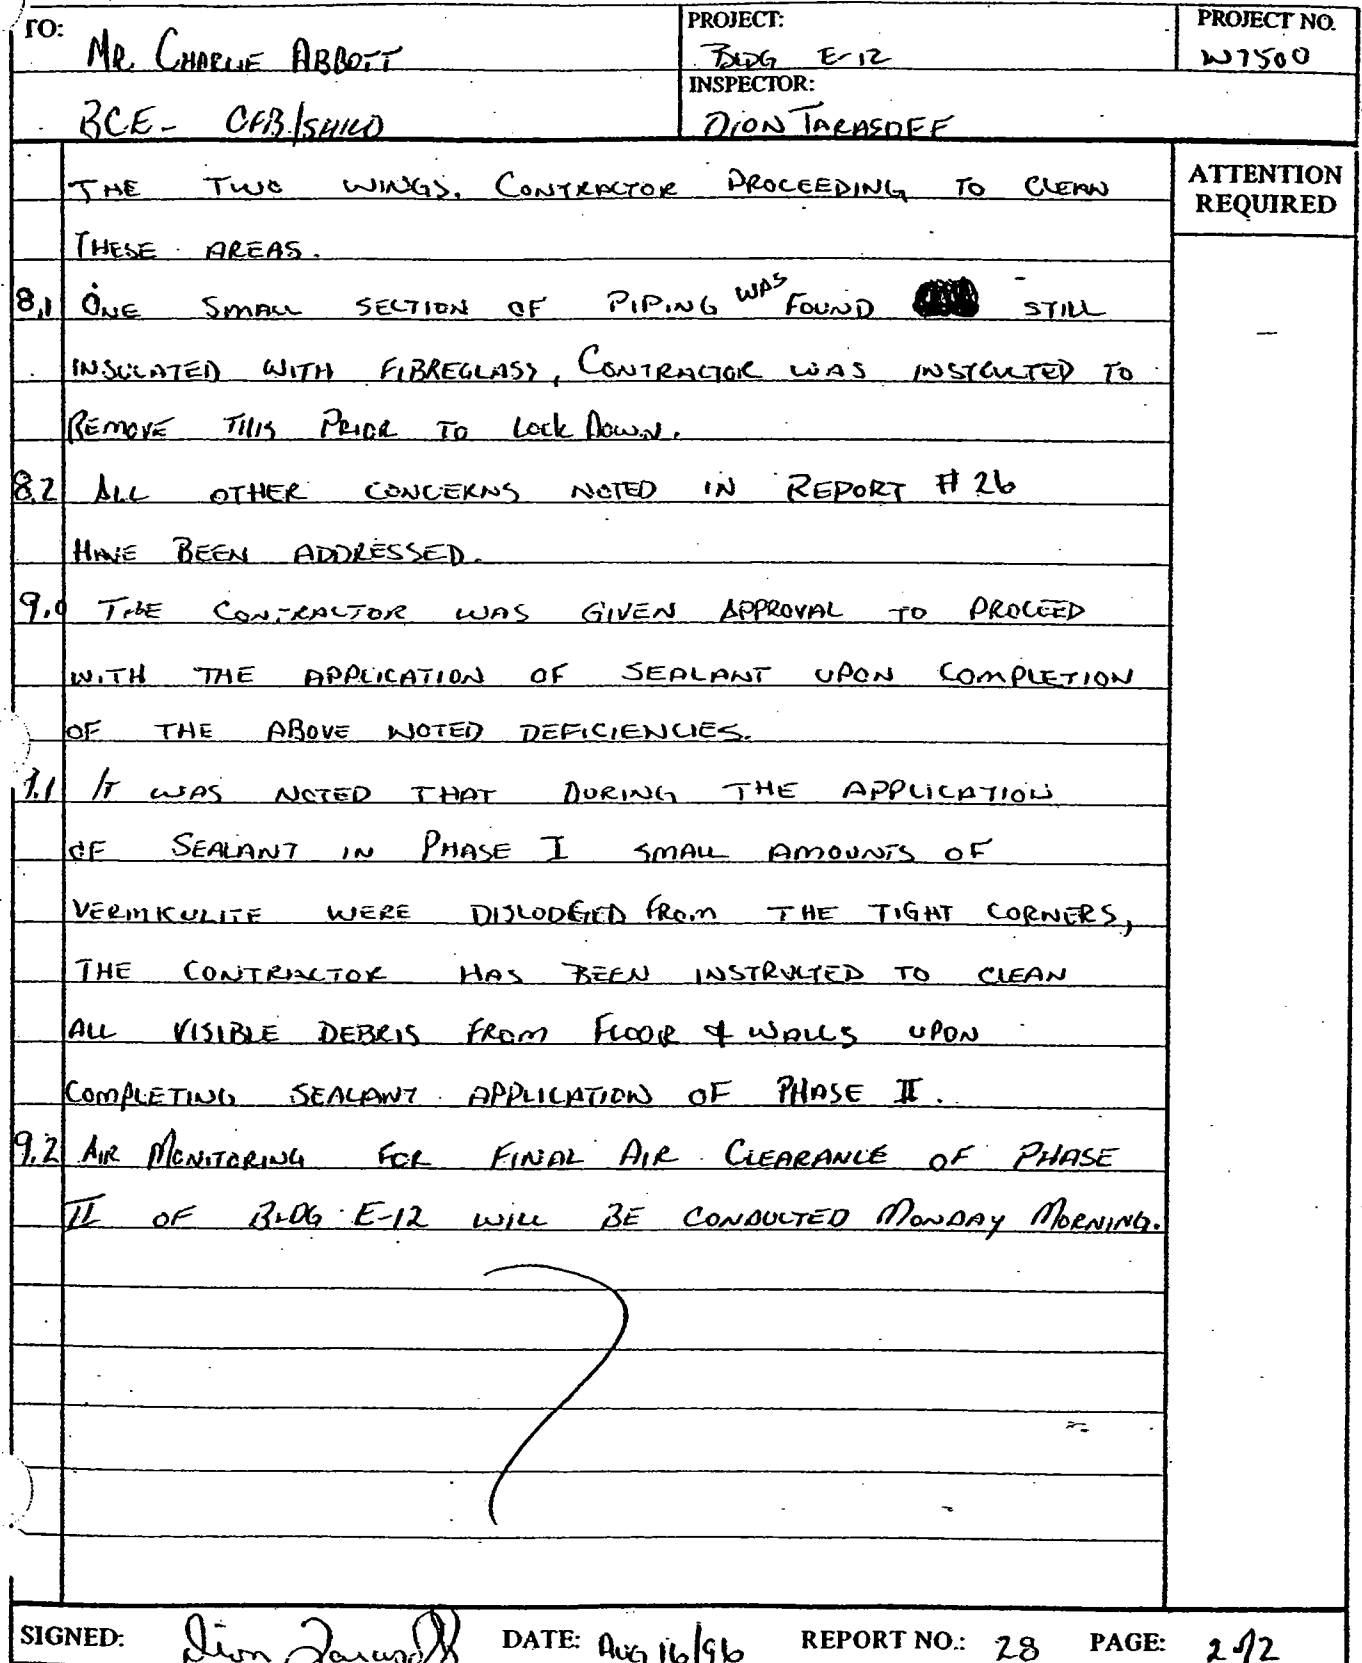 TO: MR. CHARLIE ABBOTT
PROJECT: BLDG E-12
PROJECT NO. W7500
BCE - CFB/SHILO
INSPECTOR: DION TARASOFF
ATTENTION REQUIRED
THE TWO WINGS. CONTRACTOR PROCEEDING TO CLEAN
THESE AREAS.
8.1 ONE SMALL SECTION OF PIPING WAS FOUND STILL
INSULATED WITH FIBREGLASS, CONTRACTOR WAS INSTRUCTED TO
REMOVE THIS PRIOR TO LOCK DOWN.
8.2 ALL OTHER CONCERNS NOTED IN REPORT # 26
HAVE BEEN ADDRESSED.
9.0 THE CONTRACTOR WAS GIVEN APPROVAL TO PROCEED
WITH THE APPLICATION OF SEALANT UPON COMPLETION
OF THE ABOVE NOTED DEFICIENCIES.
9.1 IT WAS NOTED THAT DURING THE APPLICATION
OF SEALANT IN PHASE I SMALL AMOUNTS OF
VERMICULITE WERE DISLODGED FROM THE TIGHT CORNERS,
THE CONTRACTOR HAS BEEN INSTRUCTED TO CLEAN
ALL VISIBLE DEBRIS FROM FLOOR & WALLS UPON
COMPLETING SEALANT APPLICATION OF PHASE II.
9.2 AIR MONITORING FOR FINAL AIR CLEARANCE OF PHASE
II OF BLDG E-12 WILL BE CONDUCTED MONDAY MORNING.
SIGNED: Dion Tarasoff DATE: AUG 16/96 REPORT NO.: 28 PAGE: 2 of 2